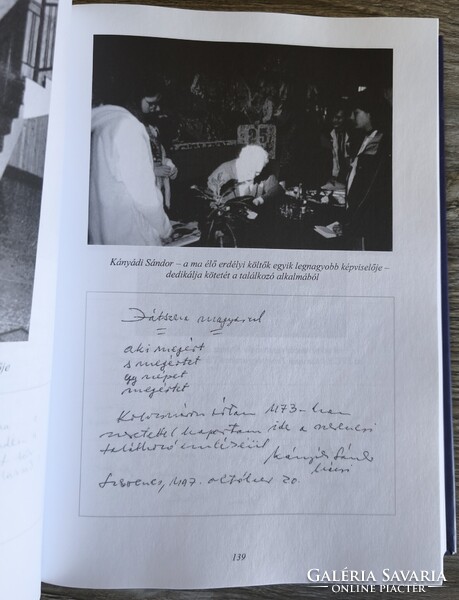 Kányádi Sándor – a ma élő erdélyi költők egyik legnagyobb képviselője –
dedikálja kötetét a találkozó alkalmából
magyarul
aki megért
s megértet
egy népet
megértet
írtam 1973-ban
szeretettel ide a szerencsi
találkozó emlékéül
Kányádi Sándor
Szerencs, 1997. október 20.
139
GALÉRIA SAVARIA
ONLINE PIACTÉR